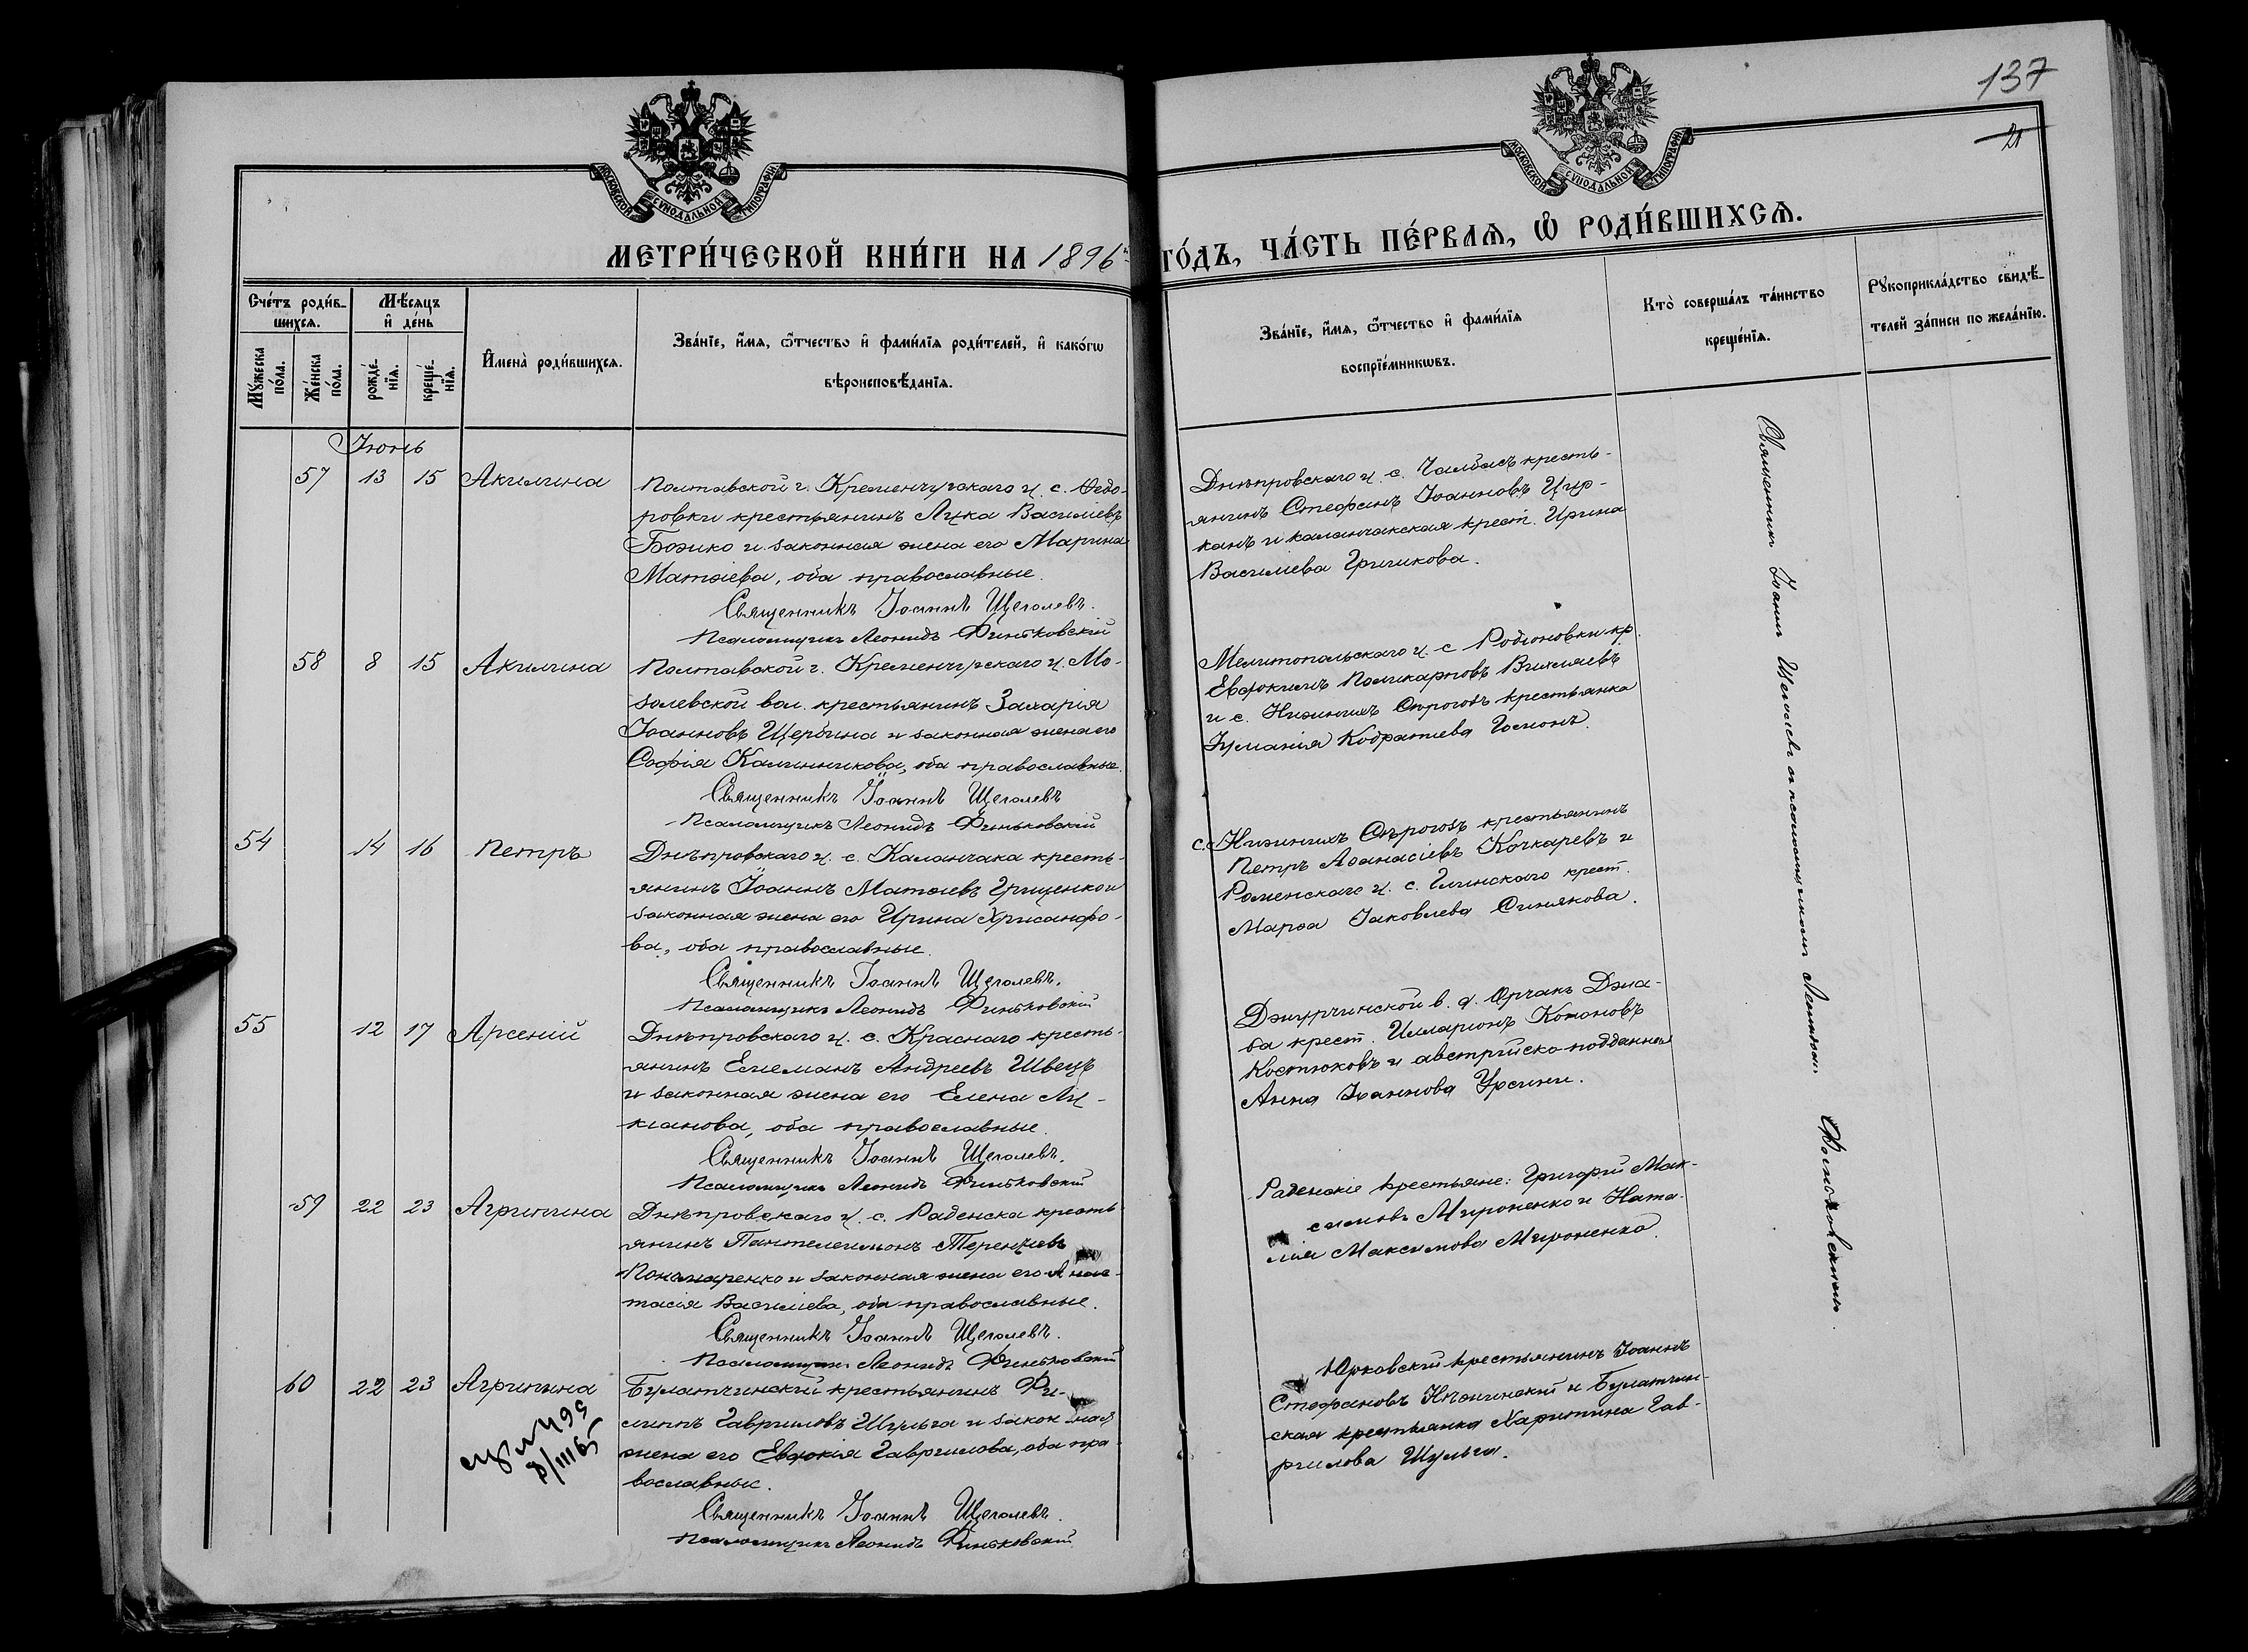 137
21
МОСКОВСКОЙ СѴНОДАЛЬНОЙ ТИПОГРАФІИ
МОСКОВСКОЙ СѴНОДАЛЬНОЙ ТИПОГРАФІИ
МЕТРИ́ЧЕСКОЙ КНИ́ГИ НА 1896й ГО́ДЪ, ЧА́СТЬ ПЕ́РВАѦ, Ѽ РОДИ́ВШИХСѦ.
Сче́тъ роди́в-
шихсѧ.
Мꙋ́жеска по́ла.
Же́нска по́ла.
Мѣ́сяцъ
и҆ де́нь
рожде́-
нїѧ.
креще́-
нїѧ.
И҆мена̀ роди́вшихсѧ.
Зва́нїе, и҆́мѧ, ѻ҆́тчество и҆ фами́лїѧ роди́телей, и҆ како́гѡ
вѣроисповѣ́данїѧ.
Зва́нїе, и҆́мѧ, ѻ҆́тчество и҆ фами́лїѧ
воспрїе́мникѡвъ.
Кто̀ соверша́лъ та́инство
креще́нїѧ.
Рꙋкоприкла́дство свидѣ́-
телей за́писи по жела́нїю.
Іюнь
57 13 15 Акилина
Полтавской г. Кременчугскаго у. с. Ѳедо-
ровки крестьянинъ Лука Василіевъ
Божко и законная жена его Марина
Матѳіева, оба православные.
Священникъ Іоаннъ Щеголевъ.
Псаломщикъ Леонидъ Финьковскій
Днѣпровскаго у. с. Чалбасъ кресть-
янинъ Стефанъ Іоанновъ Цир-
канъ и каланчакская крест. Ирина
Василіева Гричикова.
58 8 15 Акилина
Полтавской г. Кременчугскаго у. Мо-
золевской вол. крестьянинъ Захарія
Іоанновъ Щербина и законная жена его
Софія Калинникова, оба православные.
Священникъ Іоаннъ Щеголевъ
Псаломщикъ Леонидъ Финьковскій
Мелитопольскаго у. с. Родіоновки кр.
Евфокимъ Поликарповъ Вихляевъ
и с. Нижнихъ Сѣрогозъ крестьянка
Іуліанія Кодратіева Гомонъ.
54 14 16 Петръ
Днѣпровскаго у. с. Каланчака кресть-
янинъ Іоаннъ Матѳіевъ Грищенко и
законная жена его Ирина Хрисанфо-
ва, оба православные.
Священникъ Іоаннъ Щеголевъ.
Псаломщикъ Леонидъ Финьковскій
с. Нижнихъ Сѣрогозъ крестьянинъ
Петръ Аѳанасіевъ Кочкаревъ и
Роменскаго у. с. Глинскаго крест.
Марѳа Іаковлева Синякова.
55 12 17 Арсеній
Днѣпровскаго у. с. Краснаго кресть-
янинъ Андреевъ Швецъ
и законная жена его Елена Лу-
кіанова, оба православные.
Священникъ Іоаннъ Щеголевъ.
Псаломщикъ Леонидъ Финьковскій
Джурчинской в. д. Орчакъ Джа-
ба крест. Илларіонъ Кононовъ
Костюковъ и австрійско-подданная
Анна Іоаннова Урсини.
59 22 23 Агрипина
Днѣпровскаго у. с. Раденска кресть-
янинъ Пантелеимонъ Терентіевъ
Пономаренко и законная жена его Анас-
тасія Василіева, оба православные.
Священникъ Іоаннъ Щеголевъ.
Псаломщикъ Леонидъ Финьковскій
Раденскіе крестьяне: Григорій Мак-
симовъ Мироненко и Ната-
лія Максимова Мироненко.
60 22 23 Агрипина
Булатчинскій крестьянинъ Фи-
липпъ Гавриловъ Шульга и законная
жена его Евдокія Гаврилова, оба пра-
вославные.
Священникъ Іоаннъ Щеголевъ.
Псаломщикъ Леонидъ Финьковскій
Юрковскій крестьянинъ Іоаннъ
Стефановъ и Булатчин-
ская крестьянка Харитина Гав-
рилова Шульга.
Священникъ Іоаннъ Щеголевъ съ псаломщикомъ Леонидомъ Финьковскимъ.